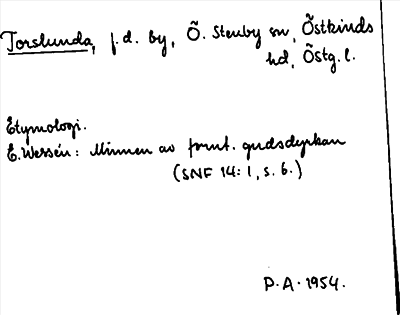 Torslunda, f.d. by, Ö. Stenby sn, Östkinds
hd, Östg. l.
Etymologi.
E. Wessén: Minnen av fornt. gudsdyrkan
(SNF 14:1, s. 6.)
P.A. 1954.